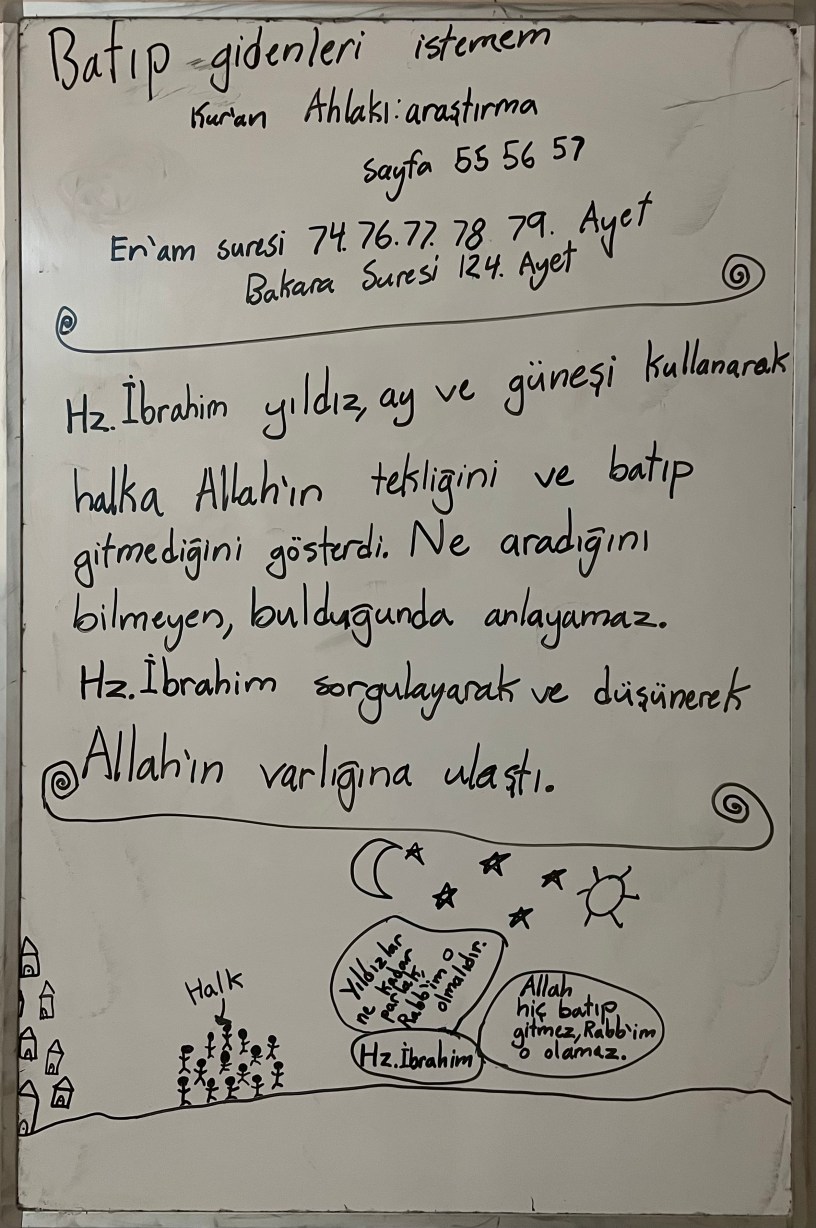 Batıp gidenleri istemem
Kur'an Ahlakı: araştırma
sayfa 55 56 57
En'am suresi 74. 76. 77. 78 79. Ayet
Bakara Suresi 124. Ayet
Hz. İbrahim yıldız, ay ve güneşi kullanarak
halka Allah'ın tekliğini ve batıp
gitmediğini gösterdi. Ne aradığını
bilmeyen, bulduğunda anlayamaz.
Hz. İbrahim sorgulayarak ve düşünerek
Allah'ın varlığına ulaştı.
Halk
Yıldızlar
ne kadar
parlak,
Rabb'im o
olmalıdır.
Hz. İbrahim
Allah
hiç batıp
gitmez, Rabb'im
o olamaz.